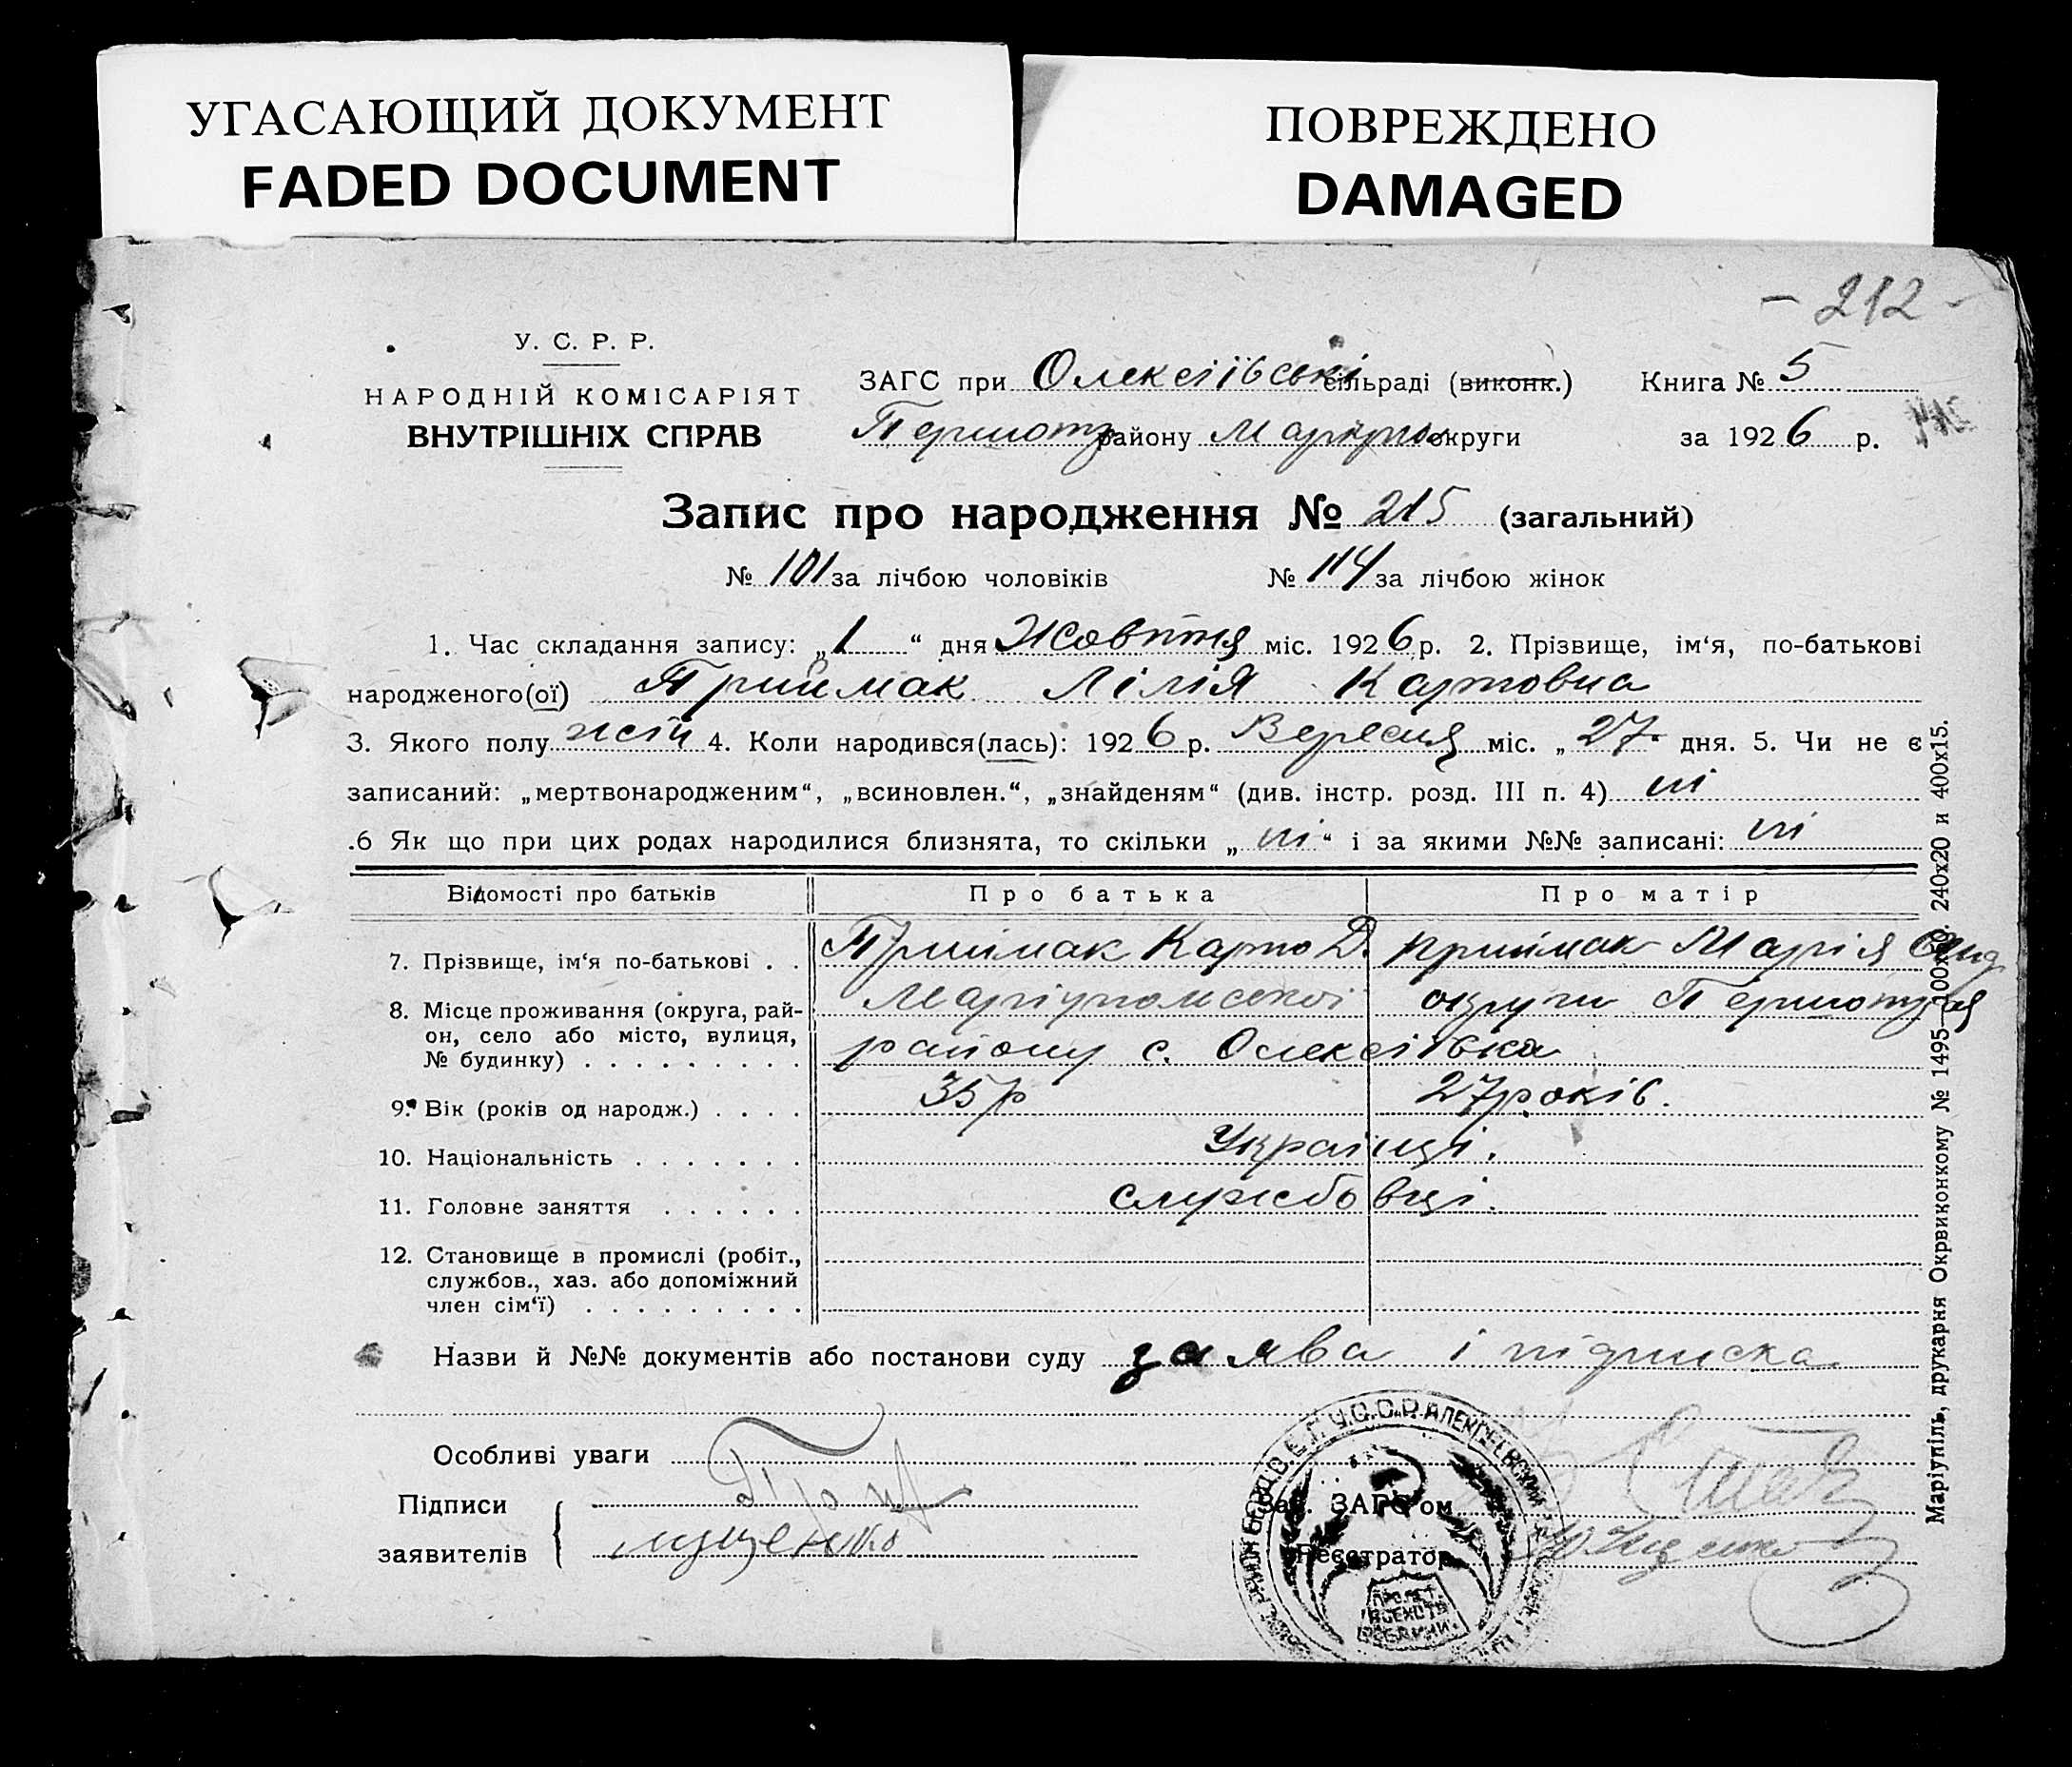 УГАСАЮЩИЙ ДОКУМЕНТ
FADED DOCUMENT
ПОВРЕЖДЕНО
DAMAGED
- 212 -
У. С. Р. Р.
НАРОДНІЙ КОМІСАРІЯТ
ВНУТРІШНІХ СПРАВ
ЗАГС при Олексіївські сільраді (виконк.) Книга № 5
Першотр району Маріупо округи за 1926 р.
Запис про народження № 215 (загальний)
№ 101 за лічбою чоловіків № 114 за лічбою жінок
1. Час складання запису: „1“ дня Жовтня міс. 1926 р. 2. Прізвище, ім‘я, по-батькові
народженого(ої) Приймак Лілія Карповна
3. Якого полу жій 4. Коли народився(лась): 1926 р. Вересня міс. „27“ дня. 5. Чи не є
записаний: „мертвонародженим“, „всиновлен.“, „знайденям“ (див. інстр. розд. III п. 4) ні
.6 Як що при цих родах народилися близнята, то скільки „ні“ і за якими №№ записані: ні
Відомості про батьків Про батька Про матір
7. Прізвище, ім‘я по-батькові . . Приймак Карпо Д. Приймак Марія Анд
8. Місце проживання (округа, рай- Маріупольської округи Першотр
он, село або місто, вулиця,
№ будинку) . . . . . . . . . району с. Олексіївка
9. Вік (років од народж.) . . . . 35 р 27 років.
10. Національність . . . . . . . Українці.
11. Головне заняття . . . . . . службовці.
12. Становище в промислі (робіт.,
службов., хаз. або допоміжний
член сім‘ї) . . . . . . . . .
Назви й №№ документів або постанови суду заява і підписка
Особливі уваги
Підписи
заявителів
Зав. ЗАГС‘ом
Реєстратор
Маріупіль, друкарня Окрвиконкому № 1495—100х50, 240х20 и 400х15.